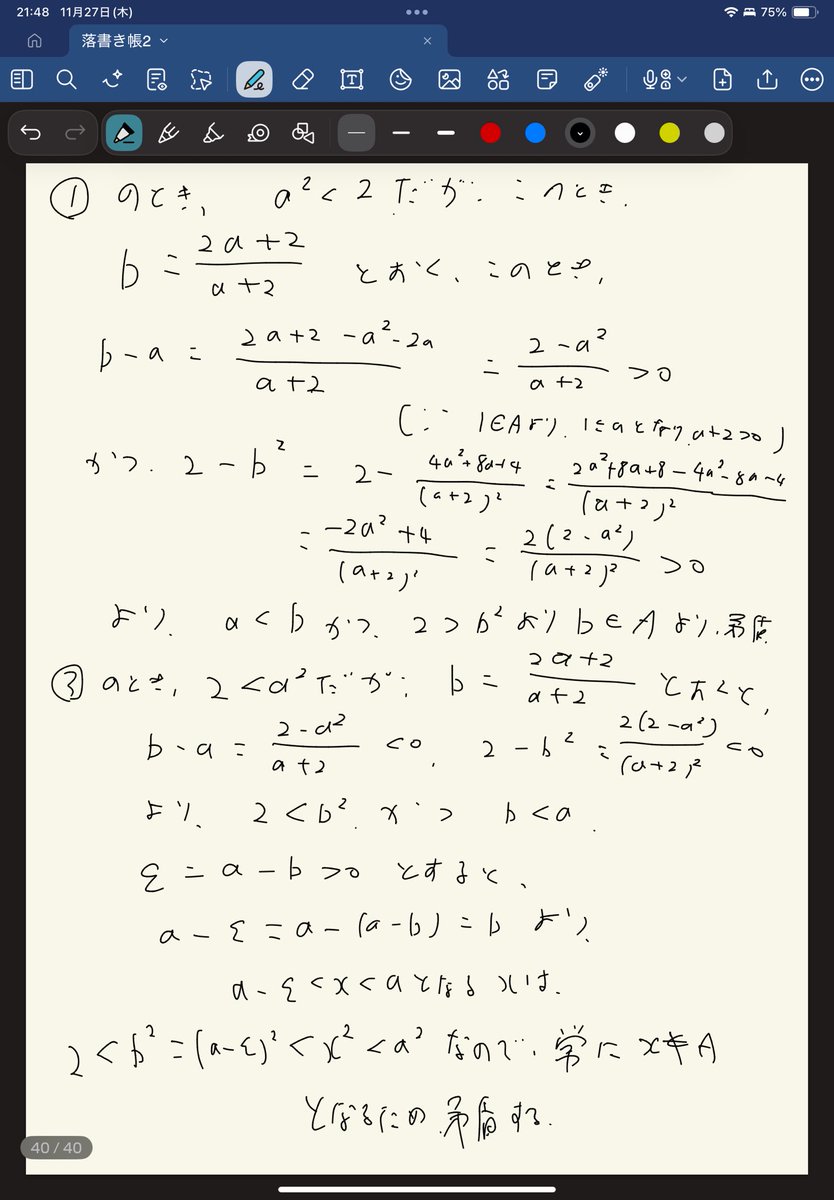 21:48 11月27日(木)
75%
落書き帳2
① のとき, a² < 2 だが、このとき.
b = (2a+2)/(a+2) とおく、このとき,
b-a = (2a+2-a²-2a)/(a+2) = (2-a²)/(a+2) >0
(∵ 1∈Aより, 1≦aとなり, a+2>0)
かつ. 2-b² = 2-(4a²+8a+4)/(a+2)² = (2a²+8a+8-4a²-8a-4)/(a+2)²
= (-2a²+4)/(a+2)² = 2(2-a²)/(a+2)² >0
より, a<b かつ, 2>b² より b∈A より, 矛盾
③ のとき, 2<a² だが, b = (2a+2)/(a+2) とおくと,
b-a = (2-a²)/(a+2) <0, 2-b² = 2(2-a²)/(a+2)² <0
より, 2<b², かつ b<a.
ε = a-b >0 とすると、
a-ε = a-(a-b) = b より,
a-ε<x<aとなるxは.
2<b²=(a-ε)²<x²<a² なので, 常に x∉A
となるため 矛盾する.
40 / 40